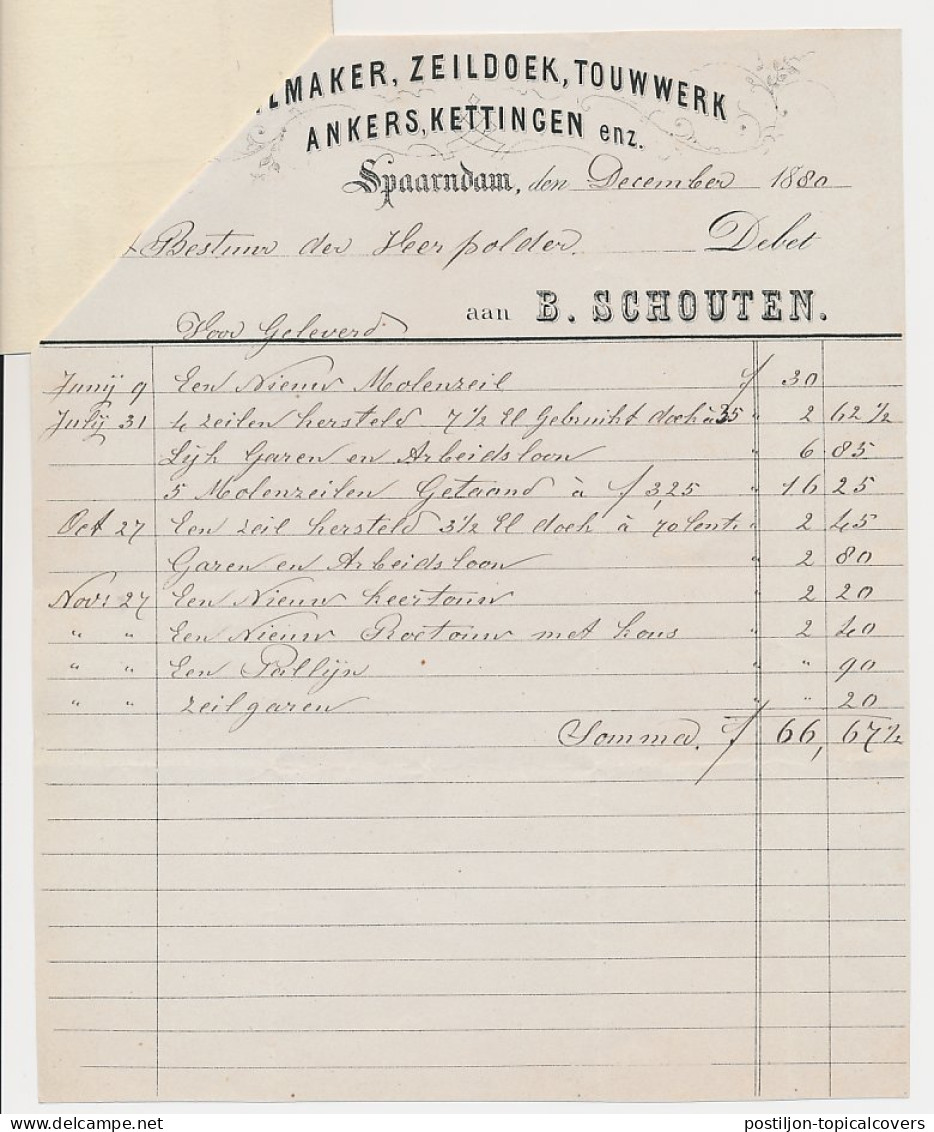 LMAKER, ZEILDOEK, TOUWWERK
ANKERS, KETTINGEN enz.
Spaarndam, den December 1880
Bestuur der Heer polder. Debet
aan B. SCHOUTEN.
Voor Geleverd
Junij 9 Een Nieuw Molenzeil f 30
Julij 31 4 zeilen hersteld 7 1/2 El Gebruikt doek à 35 " 2 62 1/2
Lijk Garen en Arbeidsloon " 6 85
5 Molenzeilen Getaand à f 3,25 " 16 25
Oct 27 Een zeil hersteld 3 1/2 El doek à 70 Cent. " 2 45
Garen en Arbeidsloon " 2 80
Nov: 27 Een Nieuw keertouw " 2 20
" " Een Nieuw Roetouw met kous " 2 40
" " Een Pallijn " " 90
" " zeilgaren " " 20
Somma. f 66, 67 1/2
postiljon-topicalcovers